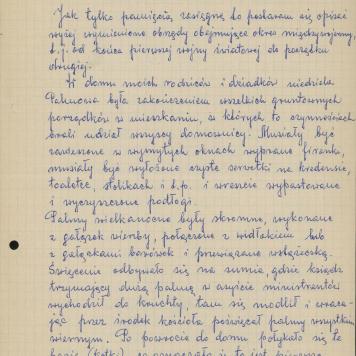 Jak tylko pamięcią zasięgnę to postaram się opisać
wyżej wymienione obrzędy obejmujące okres międzywojenny,
t.j. od końca pierwszej wojny światowej do początku
drugiej.
W domu moich rodziców i dziadków niedziela
Palmowa była zakończeniem wszelkich gruntownych
porządków w mieszkaniu, w których to czynnościach
brali udział wszyscy domownicy. Musiały być
zawieszone w wymytych oknach wyprane firanki,
musiały być wyłożone czyste serwetki na kredensie,
toalecie, stolikach i t.p. i wreszcie wypastowane
i wyczyszczone podłogi.
Palmy wielkanocne były skromne, wykonane
z gałązek wierzby, połączone z widłakiem lub
z gałązkami borówek i przewiązane wstążeczką.
Święcenie odbywało się na sumie, gdzie ksiądz
trzymający dużą palmę w asyście ministrantów
wychodził do kruchty, tam się modlił i wraca-
jąc przez środek kościoła poświęcał palmy wszystkim
wiernym. Po powrocie do domu połykało się te
bazie (kotki), co oznaczało